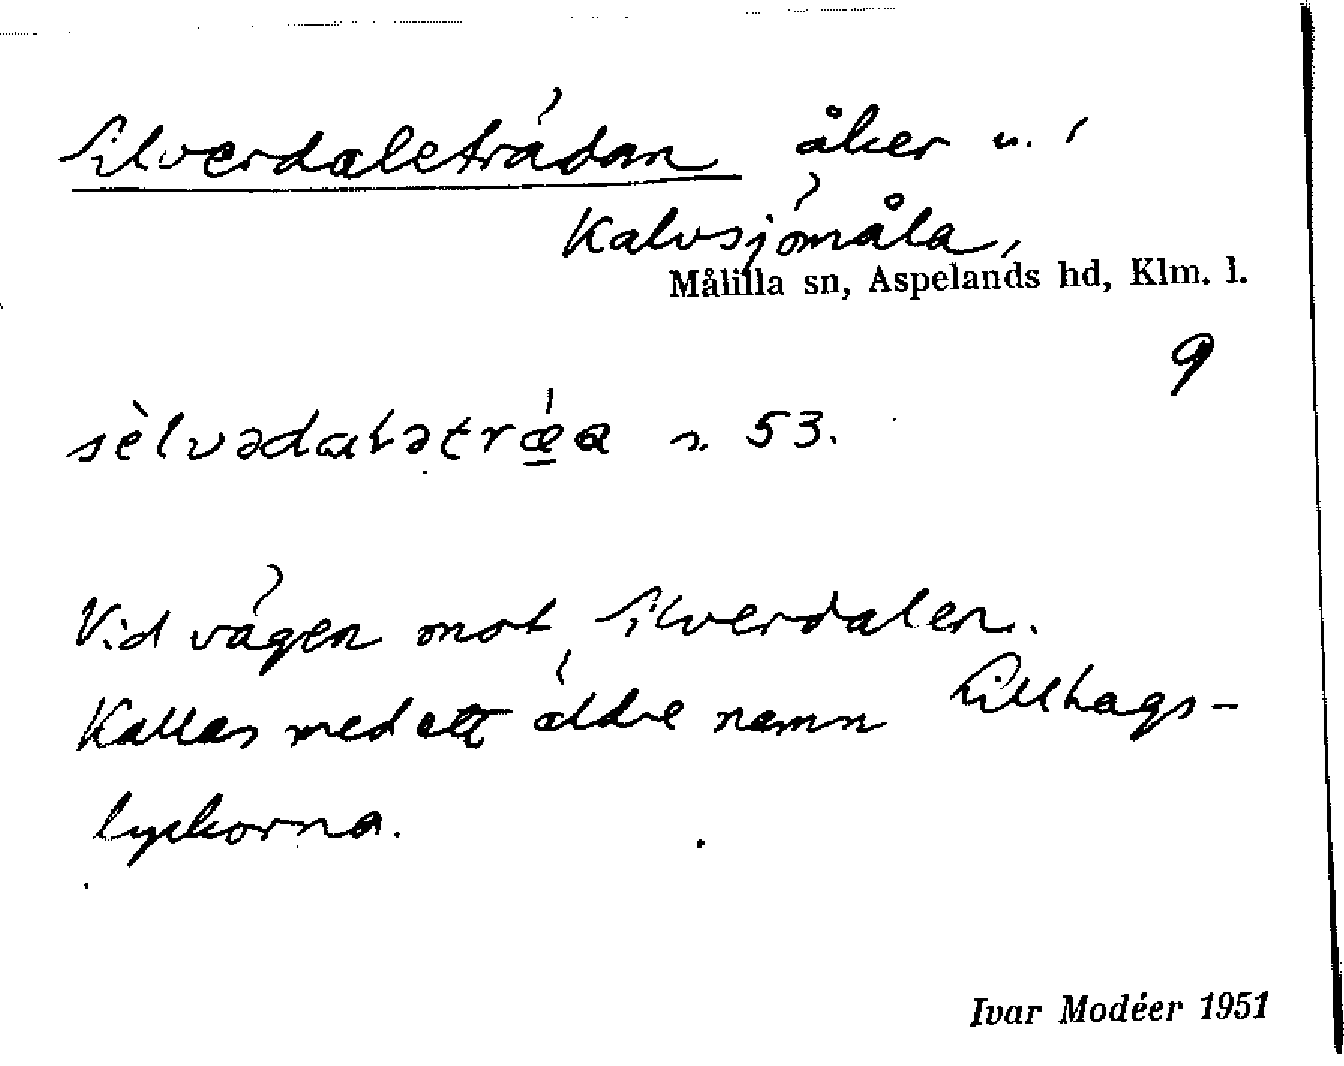 Silverdaleträdan åker u. i
Kalvsjömåla,
Målilla sn, Aspelands hd, Klm. l.
9
sèlvədaɫətrǽa s. 53.
Vid vägen mot Silverdalen.
Kallas med ett äldre namn Lillhags-
lyckorna.
Ivar Modéer 1951